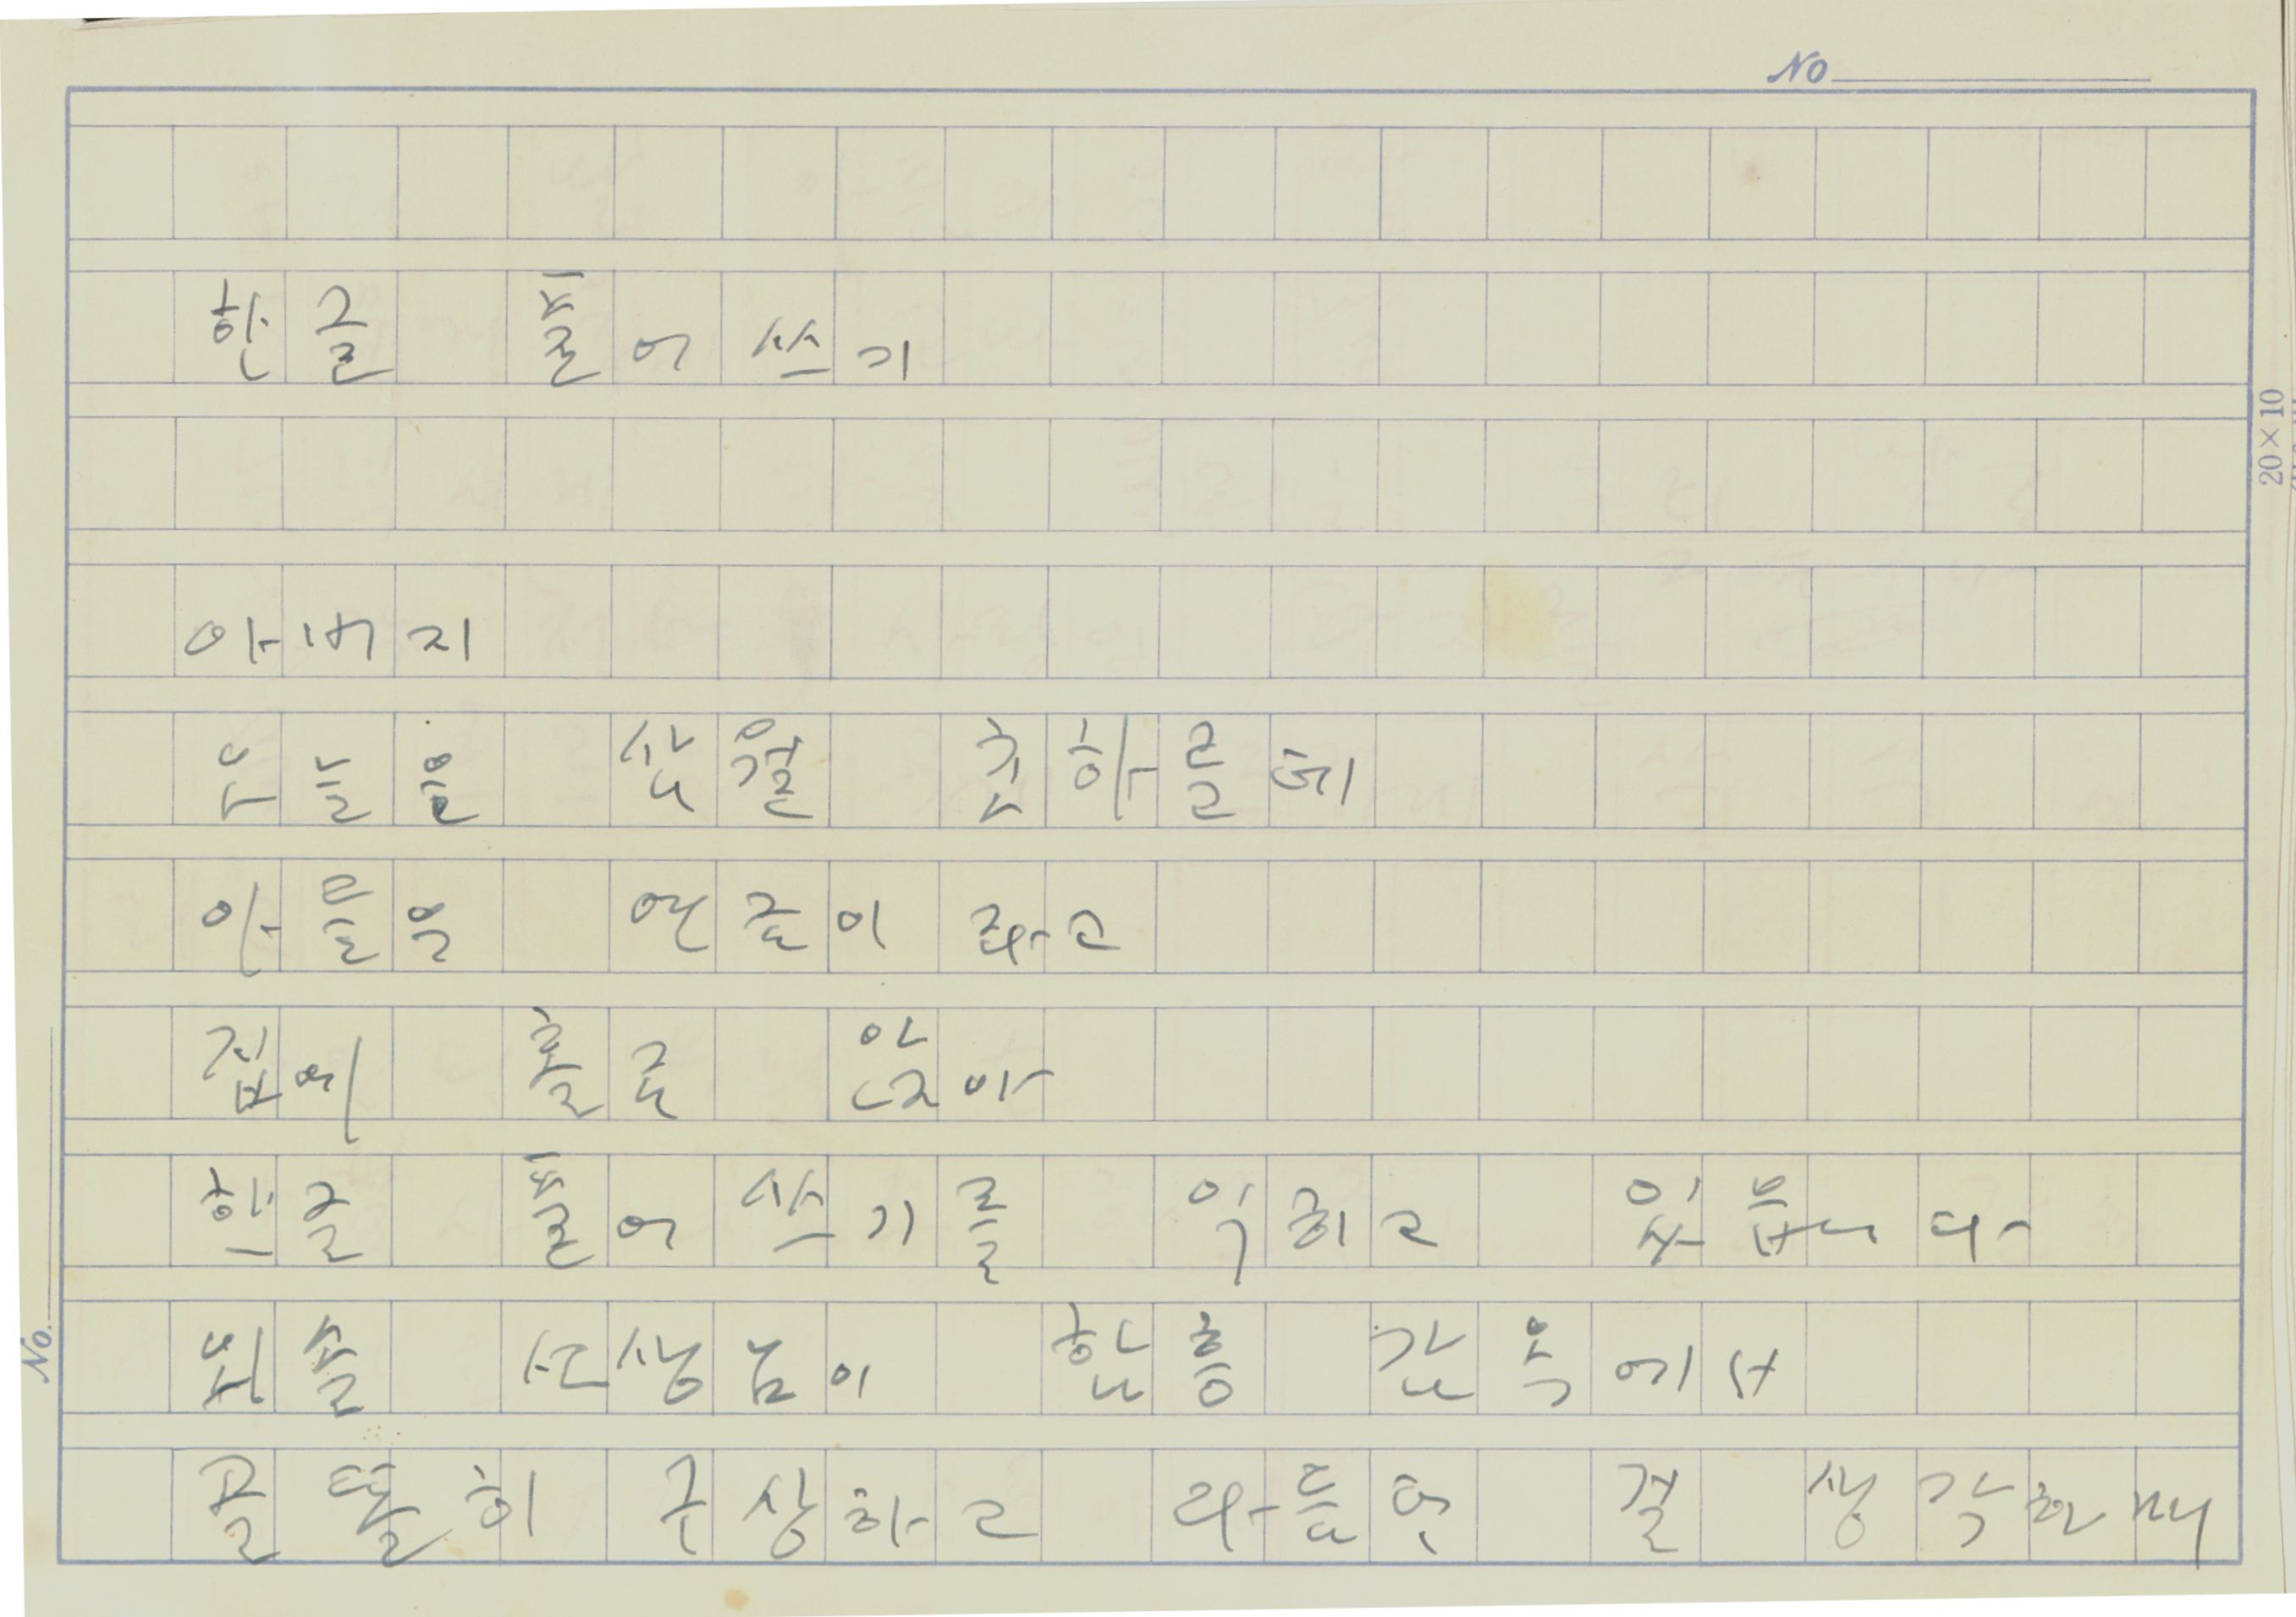 No
한글 풀어 쓰기
아버지
오늘은 삼월
아들은
집에 홀로 앉아
한글 풀어 쓰기를 익히고 있습니다
외솔 선생님이 함흥 감옥에서
골똘히 구상하고 다듬던 걸 생각하며
20×10
No.